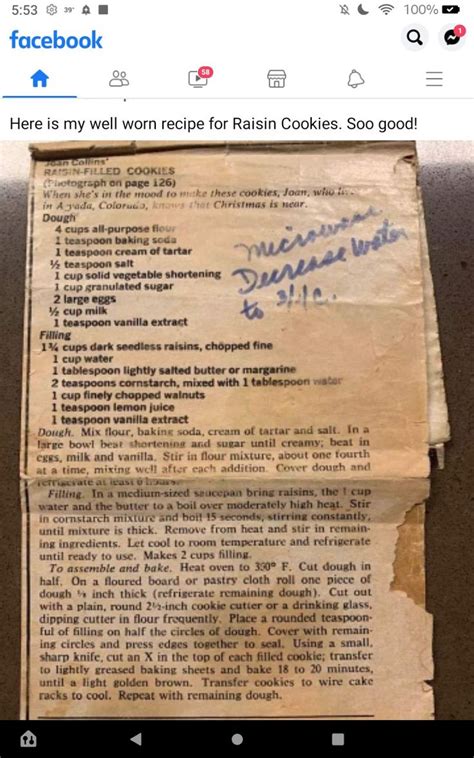 5:53 39° 100%
facebook
1
58
Here is my well worn recipe for Raisin Cookies. Soo good!
Joan Collins'
RAISIN-FILLED COOKIES
(Photograph on page 126)
When she's in the mood to make these cookies, Joan, who
in Arvada, Colorado, knows that Christmas is near.
Dough
4 cups all-purpose flour
1 teaspoon baking soda
1 teaspoon cream of tartar
½ teaspoon salt
1 cup solid vegetable shortening
1 cup granulated sugar
2 large eggs
½ cup milk
1 teaspoon vanilla extract
microwave
Decrease Water
to 3/4 C.
Filling
1¾ cups dark seedless raisins, chopped fine
1 cup water
1 tablespoon lightly salted butter or margarine
2 teaspoons cornstarch, mixed with 1 tablespoon water
1 cup finely chopped walnuts
1 teaspoon lemon juice
1 teaspoon vanilla extract
Dough. Mix flour, baking soda, cream of tartar and salt. In a
large bowl beat shortening and sugar until creamy; beat in
eggs, milk and vanilla. Stir in flour mixture, about one fourth
at a time, mixing well after each addition. Cover dough and
refrigerate at least 6 hours.
Filling. In a medium-sized saucepan bring raisins, the 1 cup
water and the butter to a boil over moderately high heat. Stir
in cornstarch mixture and boil 15 seconds, stirring constantly,
until mixture is thick. Remove from heat and stir in remain-
ing ingredients. Let cool to room temperature and refrigerate
until ready to use. Makes 2 cups filling.
To assemble and bake. Heat oven to 350° F. Cut dough in
half. On a floured board or pastry cloth roll one piece of
dough ⅛ inch thick (refrigerate remaining dough). Cut out
with a plain, round 2½-inch cookie cutter or a drinking glass,
dipping cutter in flour frequently. Place a rounded teaspoon-
ful of filling on half the circles of dough. Cover with remain-
ing circles and press edges together to seal. Using a small,
sharp knife, cut an X in the top of each filled cookie; transfer
to lightly greased baking sheets and bake 18 to 20 minutes,
until a light golden brown. Transfer cookies to wire cake
racks to cool. Repeat with remaining dough.